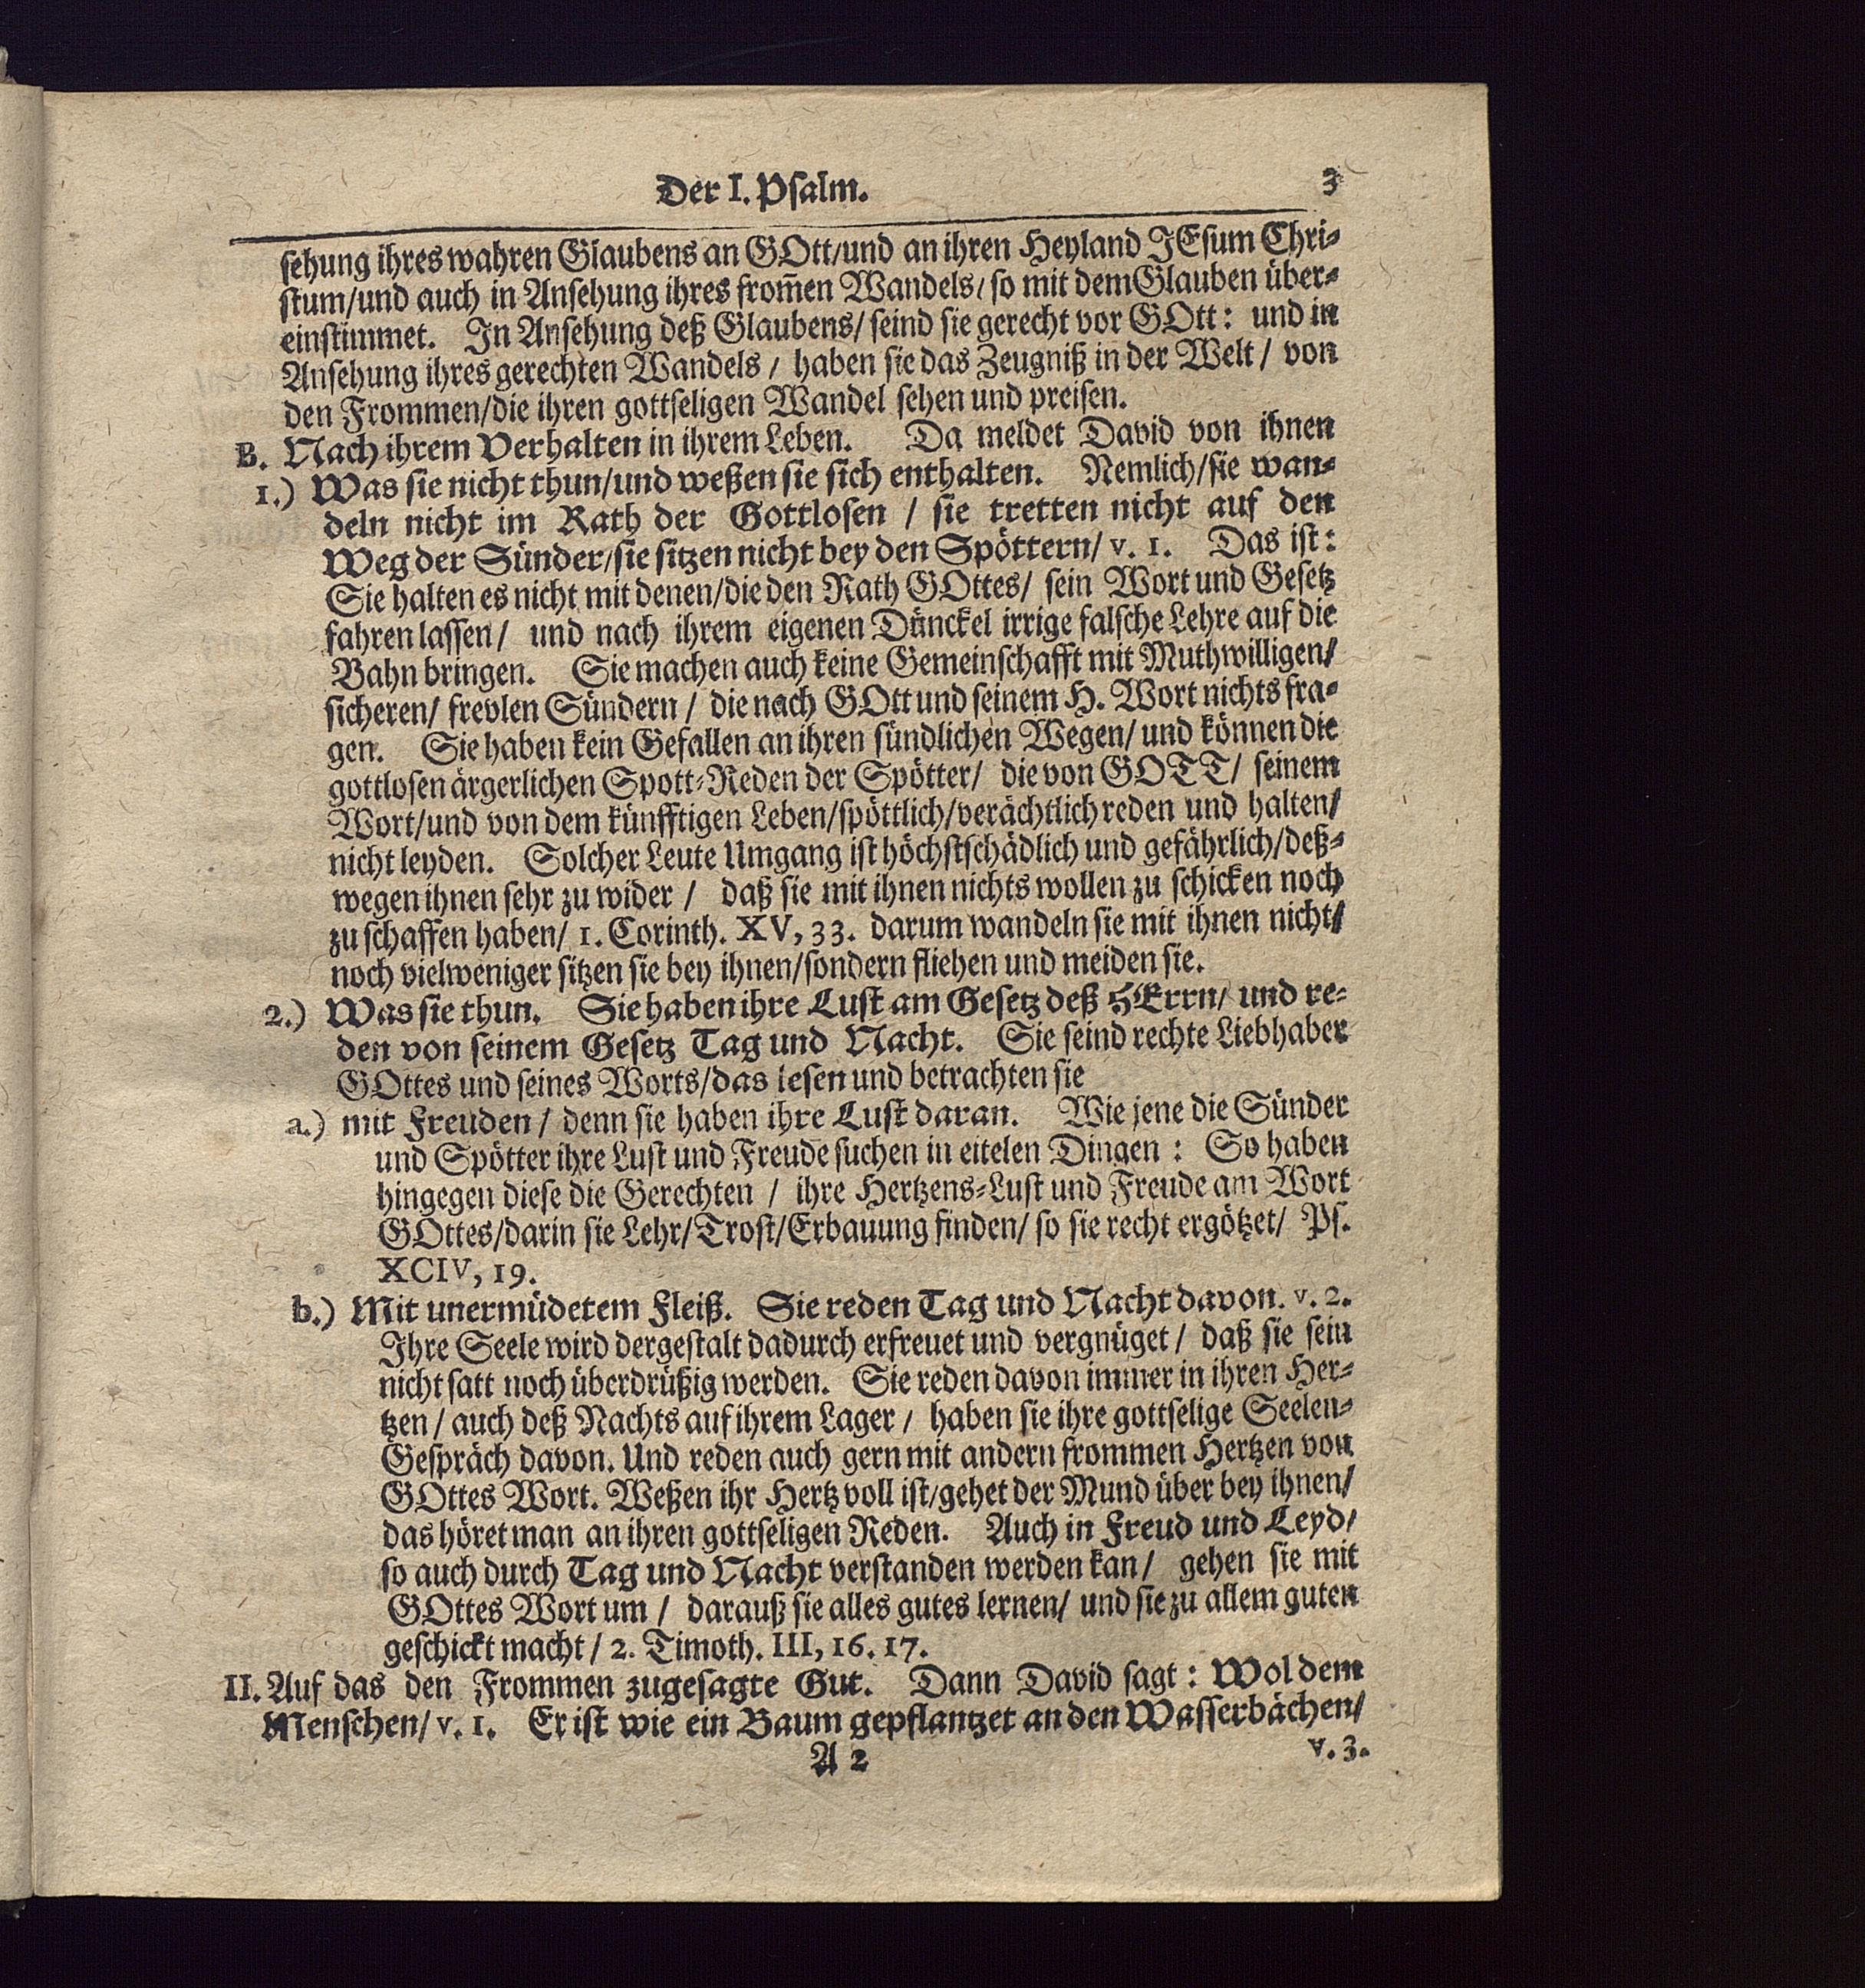 Der I. Psalm. 3
sehung ihres wahren Glaubens an GOtt/und an ihren Heyland JEsum Chri-
stum/und auch in Ansehung ihres from̃en Wandels/ so mit dem Glauben über-
einstimmet. In Ansehung deß Glaubens/ seind sie gerecht vor GOtt: und in
Ansehung ihres gerechten Wandels / haben sie das Zeugniß in der Welt / von
den Frommen/die ihren gottseligen Wandel sehen und preisen.
B. Nach ihrem Verhalten in ihrem Leben. Da meldet David von ihnen
1.) Was sie nicht thun/und weßen sie sich enthalten. Nemlich/sie wan-
deln nicht im Rath der Gottlosen / sie tretten nicht auf den
Weg der Sünder/sie sitzen nicht bey den Spöttern/ v. 1. Das ist:
Sie halten es nicht mit denen/die den Rath GOttes/ sein Wort und Gesetz
fahren lassen/ und nach ihrem eigenen Dünckel irrige falsche Lehre auf die
Bahn bringen. Sie machen auch keine Gemeinschafft mit Muthwilligen/
sicheren/ frevlen Sündern / die nach GOtt und seinem H. Wort nichts fra-
gen. Sie haben kein Gefallen an ihren sündlichen Wegen/ und können die
gottlosen ärgerlichen Spott-Reden der Spötter/ die von GOTT/ seinem
Wort/und von dem künfftigen Leben/spöttlich/verächtlich reden und halten/
nicht leyden. Solcher Leute Umgang ist höchstschädlich und gefährlich/deß-
wegen ihnen sehr zu wider / daß sie mit ihnen nichts wollen zu schicken noch
zu schaffen haben/ 1. Corinth. XV, 33. darum wandeln sie mit ihnen nicht/
noch vielweniger sitzen sie bey ihnen/sondern fliehen und meiden sie.
2.) Was sie thun. Sie haben ihre Lust am Gesetz deß HErrn/ und re-
den von seinem Gesetz Tag und Nacht. Sie seind rechte Liebhaber
GOttes und seines Worts/das lesen und betrachten sie
a.) mit Freuden / denn sie haben ihre Lust daran. Wie jene die Sünder
und Spötter ihre Lust und Freude suchen in eitelen Dingen: So haben
hingegen diese die Gerechten / ihre Hertzens-Lust und Freude am Wort
GOttes/darin sie Lehr/Trost/Erbauung finden/ so sie recht ergötzet/ Ps.
XCIV, 19.
b.) Mit unermüdetem Fleiß. Sie reden Tag und Nacht davon. v. 2.
Ihre Seele wird dergestalt dadurch erfreuet und vergnüget / daß sie sein
nicht satt noch überdrüßig werden. Sie reden davon immer in ihren Her-
tzen / auch deß Nachts auf ihrem Lager / haben sie ihre gottselige Seelen-
Gespräch davon. Und reden auch gern mit andern frommen Hertzen von
GOttes Wort. Weßen ihr Hertz voll ist/gehet der Mund über bey ihnen/
das höret man an ihren gottseligen Reden. Auch in Freud und Leyd/
so auch durch Tag und Nacht verstanden werden kan/ gehen sie mit
GOttes Wort um / darauß sie alles gutes lernen/ und sie zu allem guten
geschickt macht / 2. Timoth. III, 16. 17.
II. Auf das den Frommen zugesagte Gut. Dann David sagt: Wol dem
Menschen/ v. 1. Er ist wie ein Baum gepflantzet an den Wasserbächen/
A 2 v. 3.